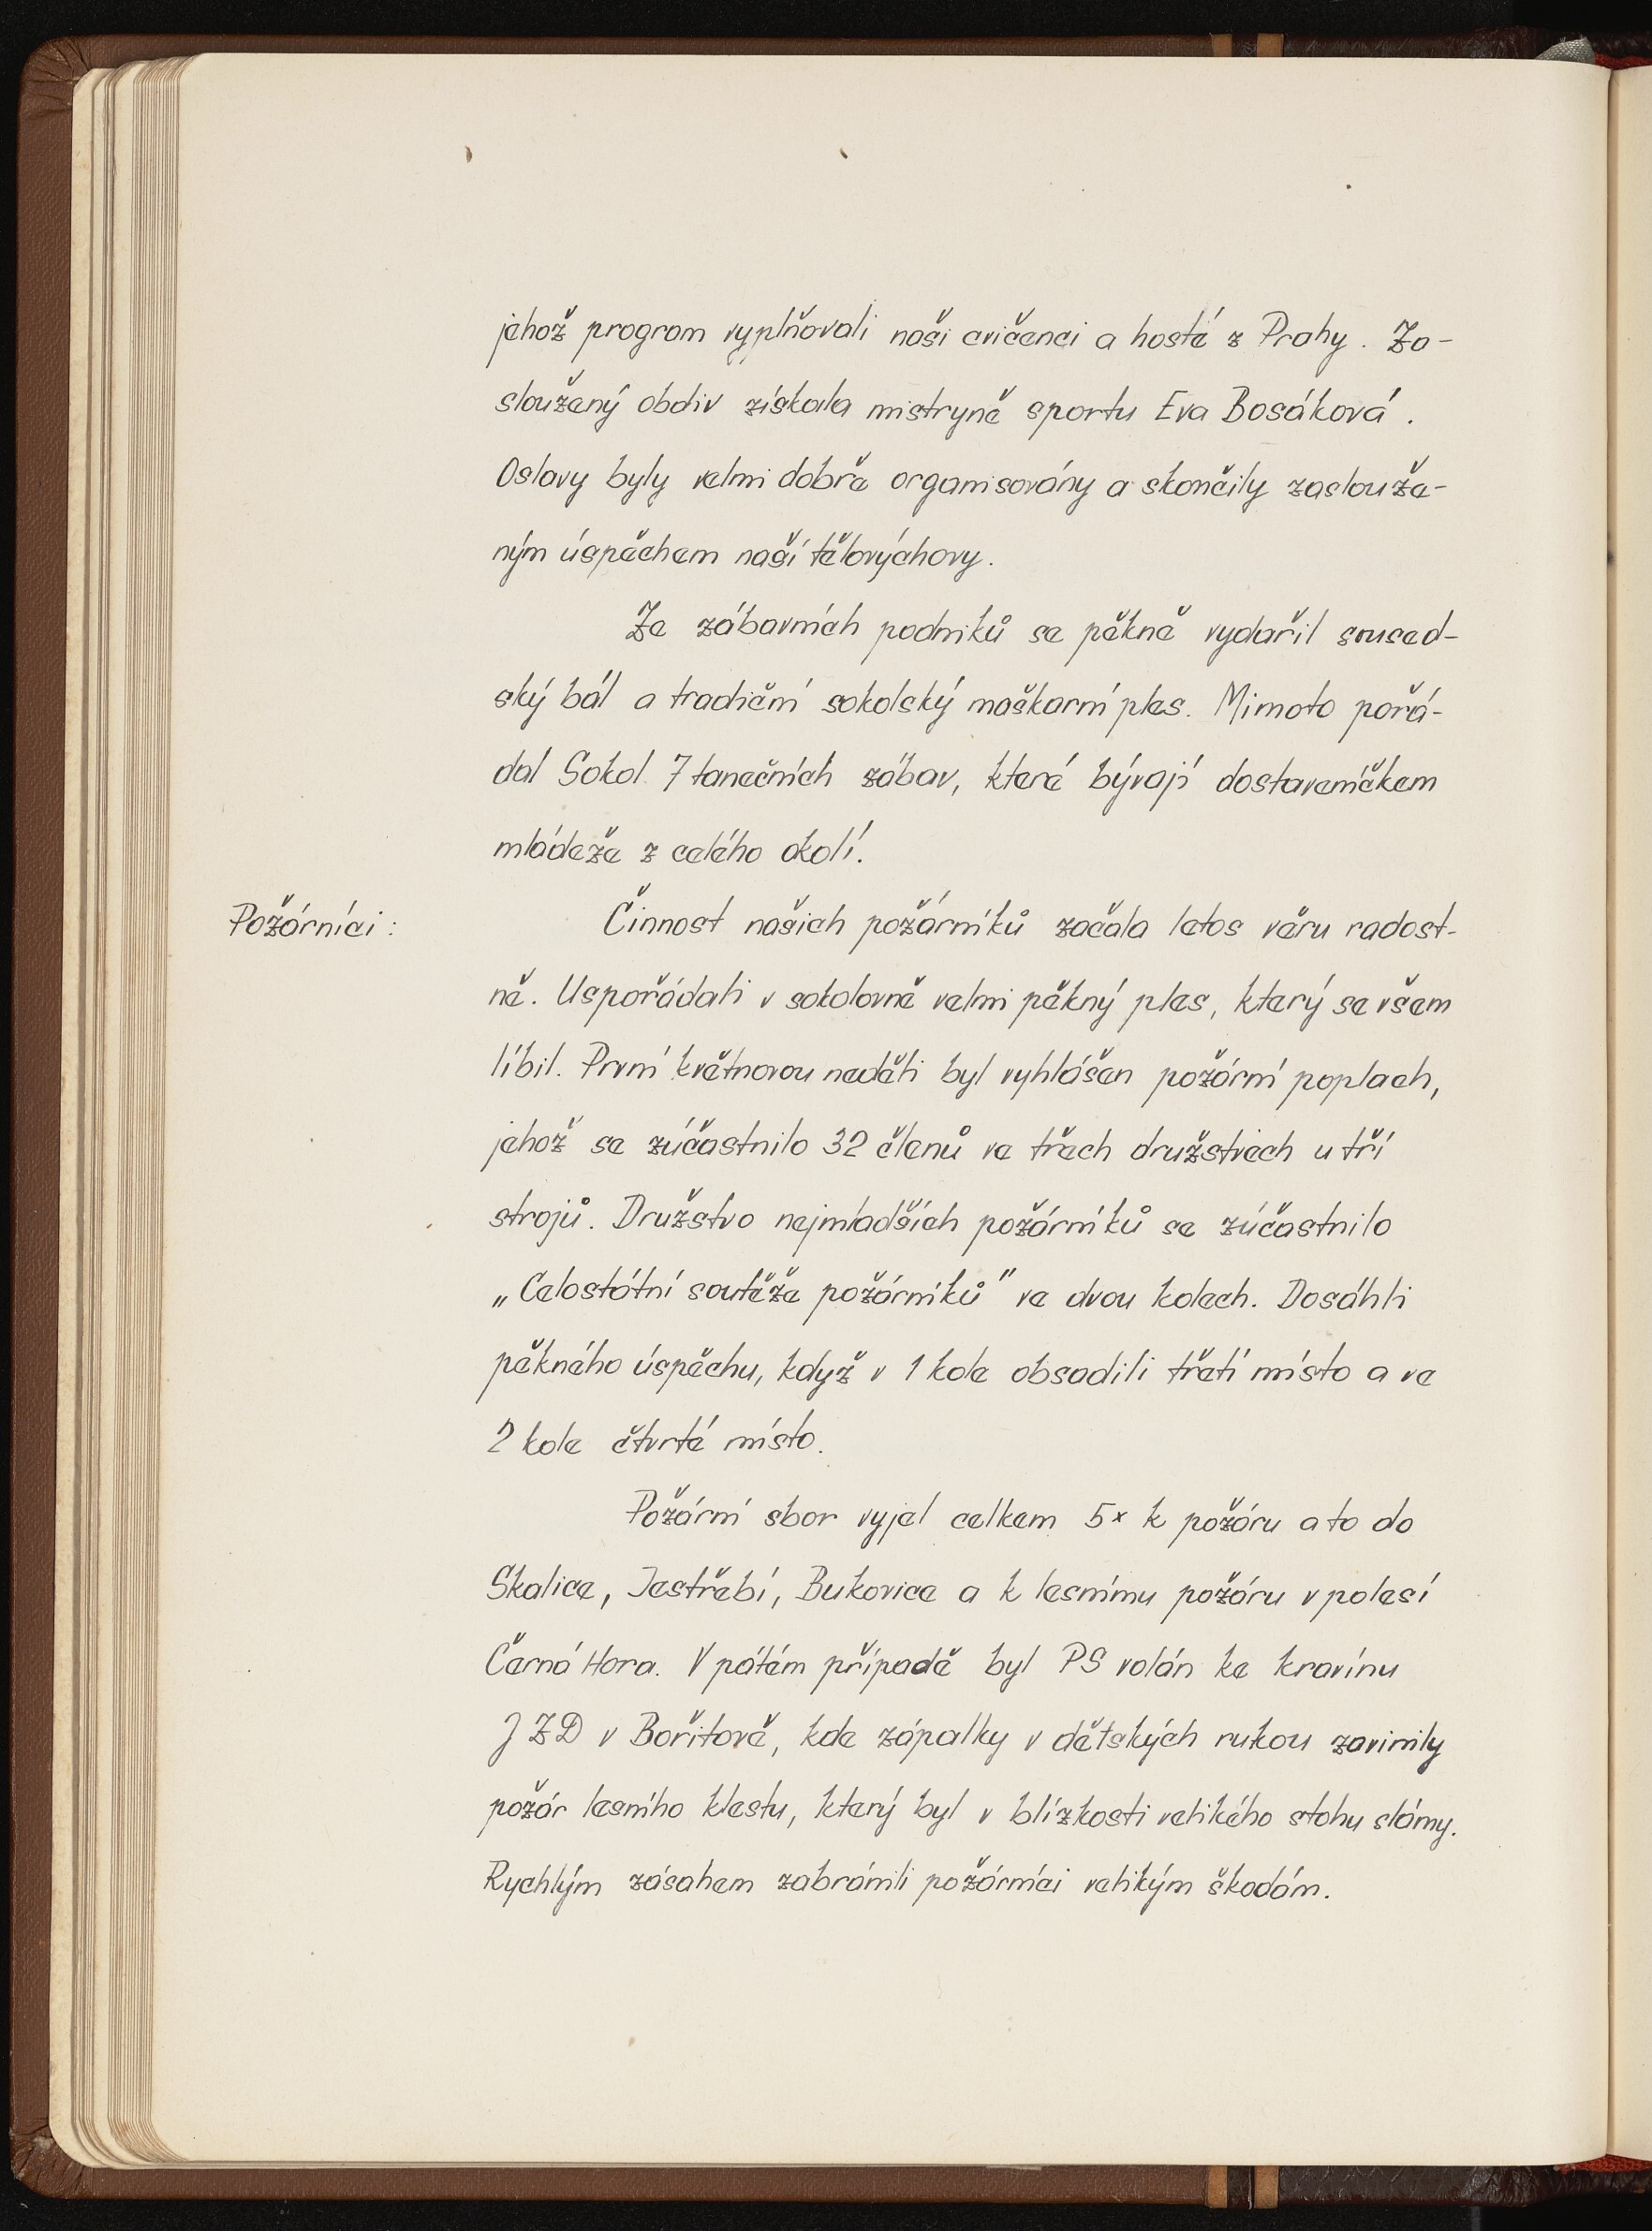 jehož program vyplňovali naši cvičenci a hosté z Prahy. Za-
sloužený obdiv získala mistryně sportu Eva Bosáková.
Oslavy byly velmi dobře organisovány a skončily zaslouže-
ným úspěchem naší tělovýchovy.
Ze zábavních podniků se pěkně vydařil soused-
ský bál a tradiční sokolský maškarní ples. Mimoto pořá-
dal Sokol 7 tanečních zábav, které bývají dostaveníčkem
mládeže z celého okolí.
Požárníci:
Činnost našich požárníků začala letos věru radost-
ně. Uspořádali v sokolovně velmi pěkný ples, který se všem
líbil. První květnovou neděli byl vyhlášen požární poplach,
jehož se zúčastnilo 32 členů ve třech družstvech u tří
strojů. Družstvo nejmladších požárníků se zúčastnilo
„Celostátní soutěže požárníků" ve dvou kolech. Dosáhli
pěkného úspěchu, když v 1 kole obsadili třetí místo a ve
2 kole čtvrté místo.
Požární sbor vyjel celkem 5x k požáru a to do
Skalice, Jestřebí, Bukovice a k lesnímu požáru v polesí
Černá Hora. V pátém případě byl PS volán ke kravínu
JZD v Bořitově, kde zápalky v dětských rukou zavinily
požár lesního klestu, který byl v blízkosti velikého stohu slámy.
Rychlým zásahem zabránili požárníci velikým škodám.